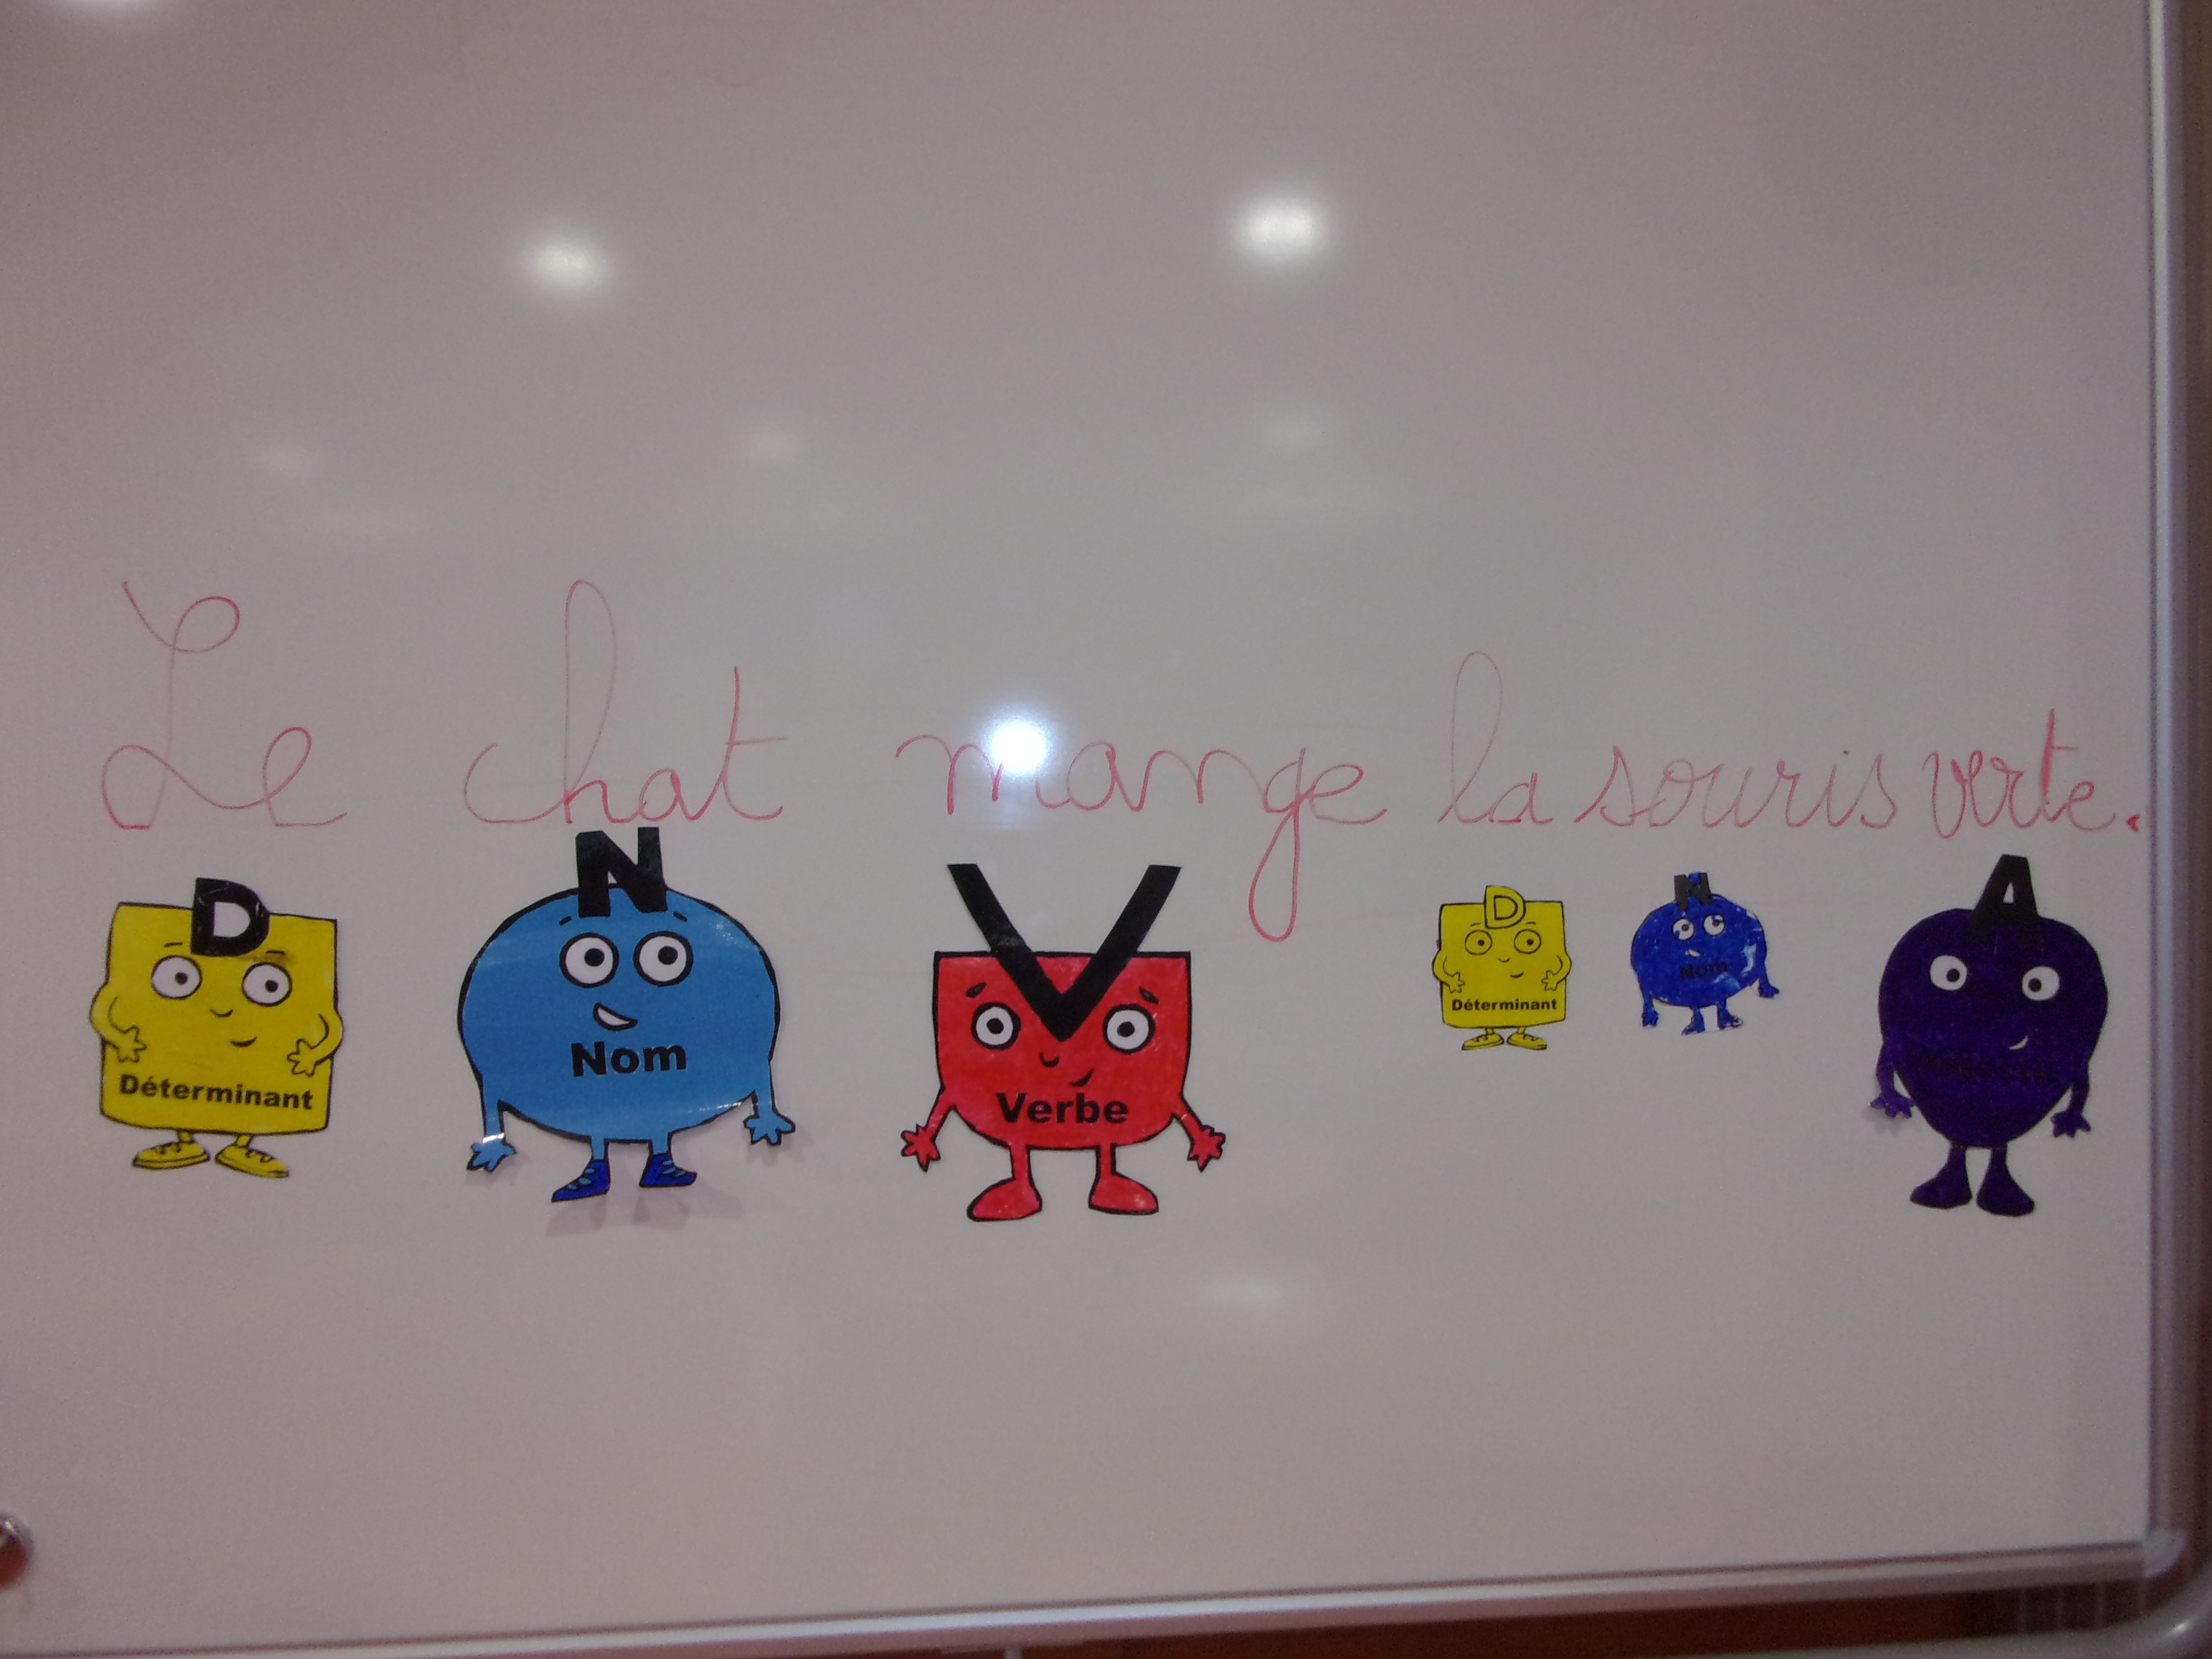 Le chat mange la souris verte.
D N V D N A
Déterminant Nom Verbe Déterminant Nom